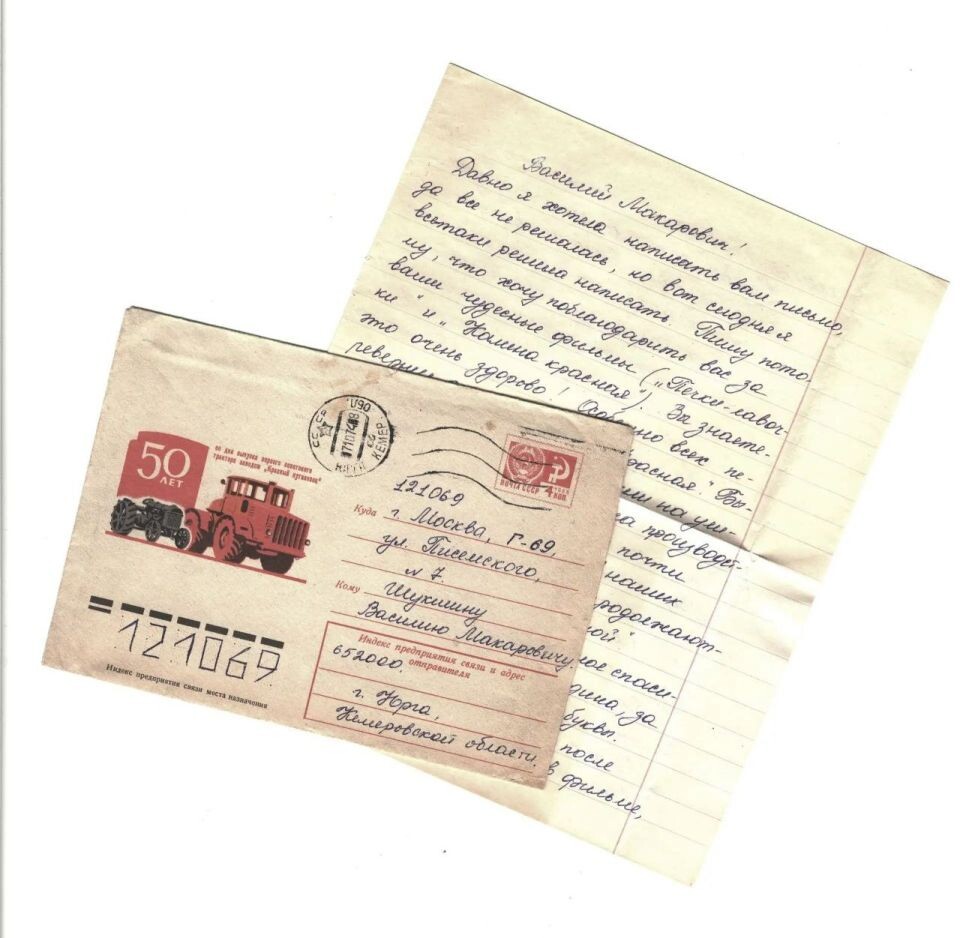 Василий Макарович!
Давно я хотела написать вам письмо,
да все не решалась, но вот сегодня я
всетаки решила написать. Пишу пото-
му, что хочу поблагодарить вас за
ваши чудесные фильмы ("Печки-лавоч-
ки" и "Калина красная"). Вы знаете-
это очень здорово! всех пе-
красная." Вы-
производст-
почти
наших
ной"
спаси-
да
буквы.
после
в фильме,
50
ЛЕТ
со дня выпуска первого советского
трактора заводом "Красный путиловец"
СССР
ПОЧТА СССР
4 КОП
121069
Куда г. Москва, Г-69.
ул. Писемского,
7.
Кому Шукшину
Василию Макаровичу.
Индекс предприятия связи и адрес
отправителя
652000
г. Юрга,
Кемеровской области.
121069
Индекс предприятия связи места назначения